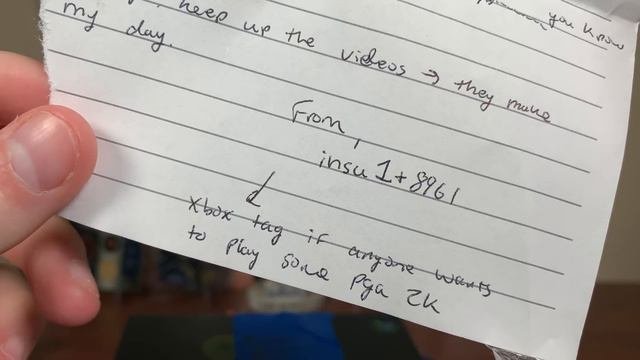 you know
keep up the videos → they make
my day.
From,
insu1+8961
Xbox tag if anyone wants
to play some pga 2K